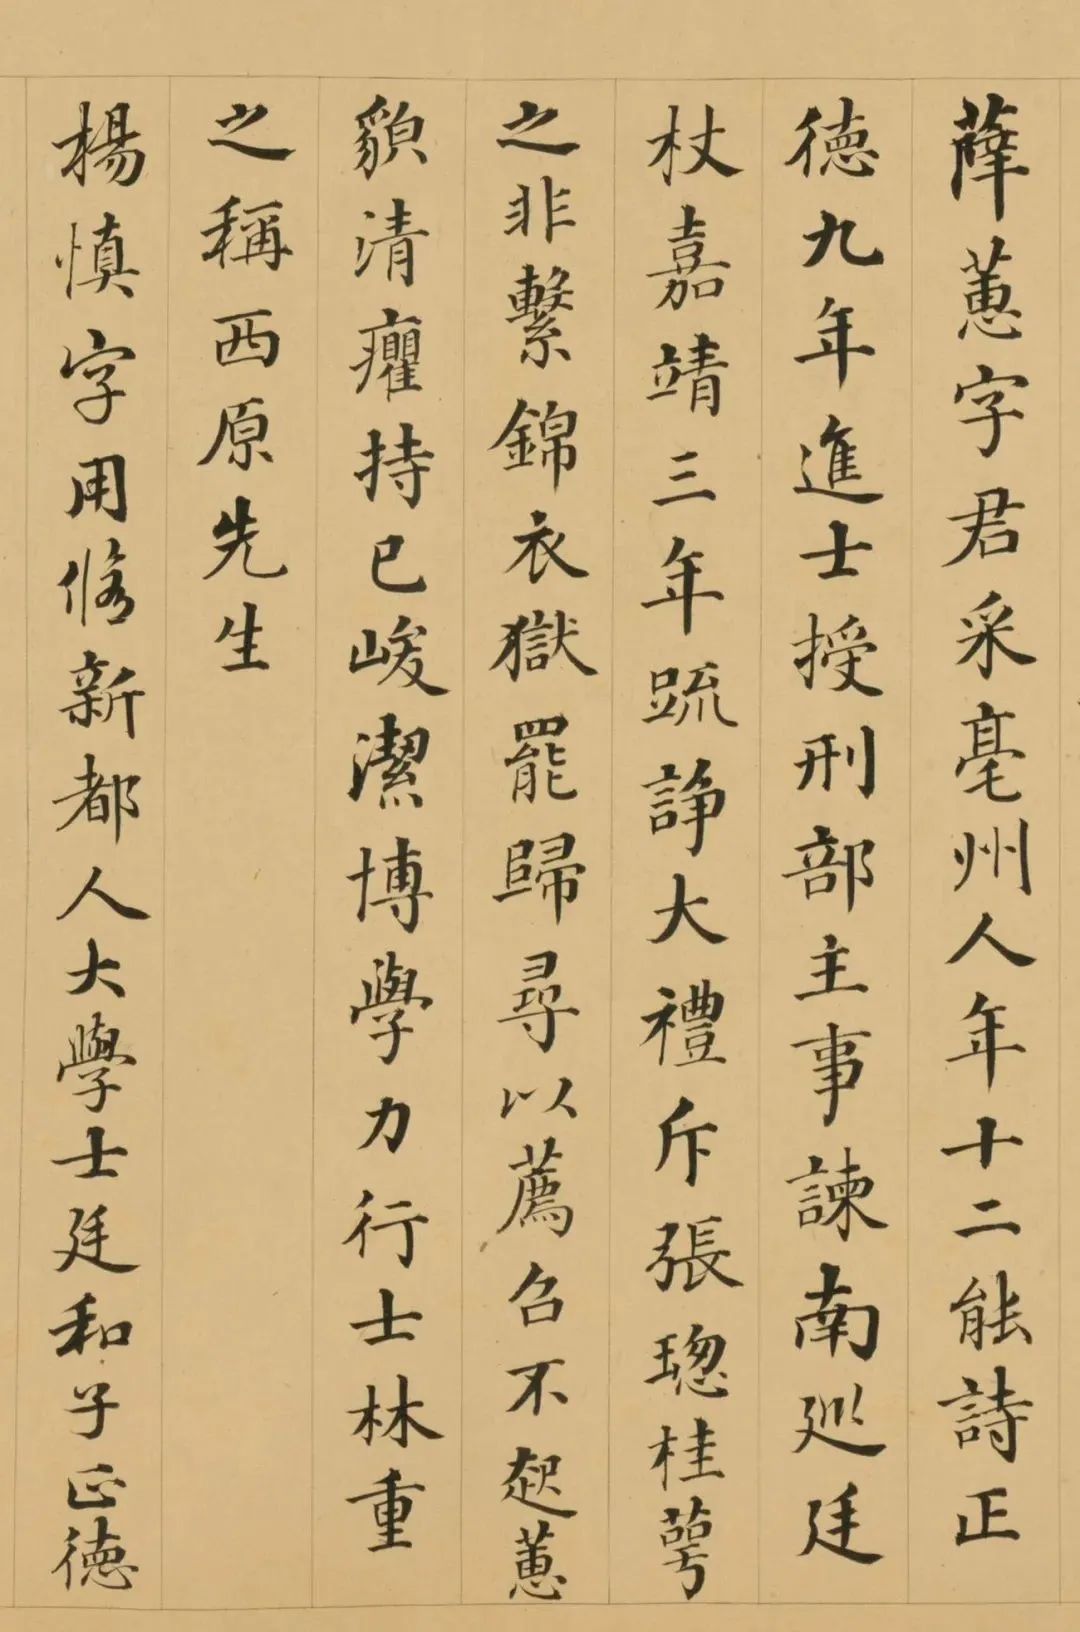 薛蕙字君采亳州人年十二能詩正
德九年進士授刑部主事諫南巡廷
杖嘉靖三年疏諍大禮斥張璁桂萼
之非繫錦衣獄罷歸尋以薦召不起蕙
貌清癯持己峻潔博學力行士林重
之稱西原先生
楊慎字用修新都人大學士廷和子正德